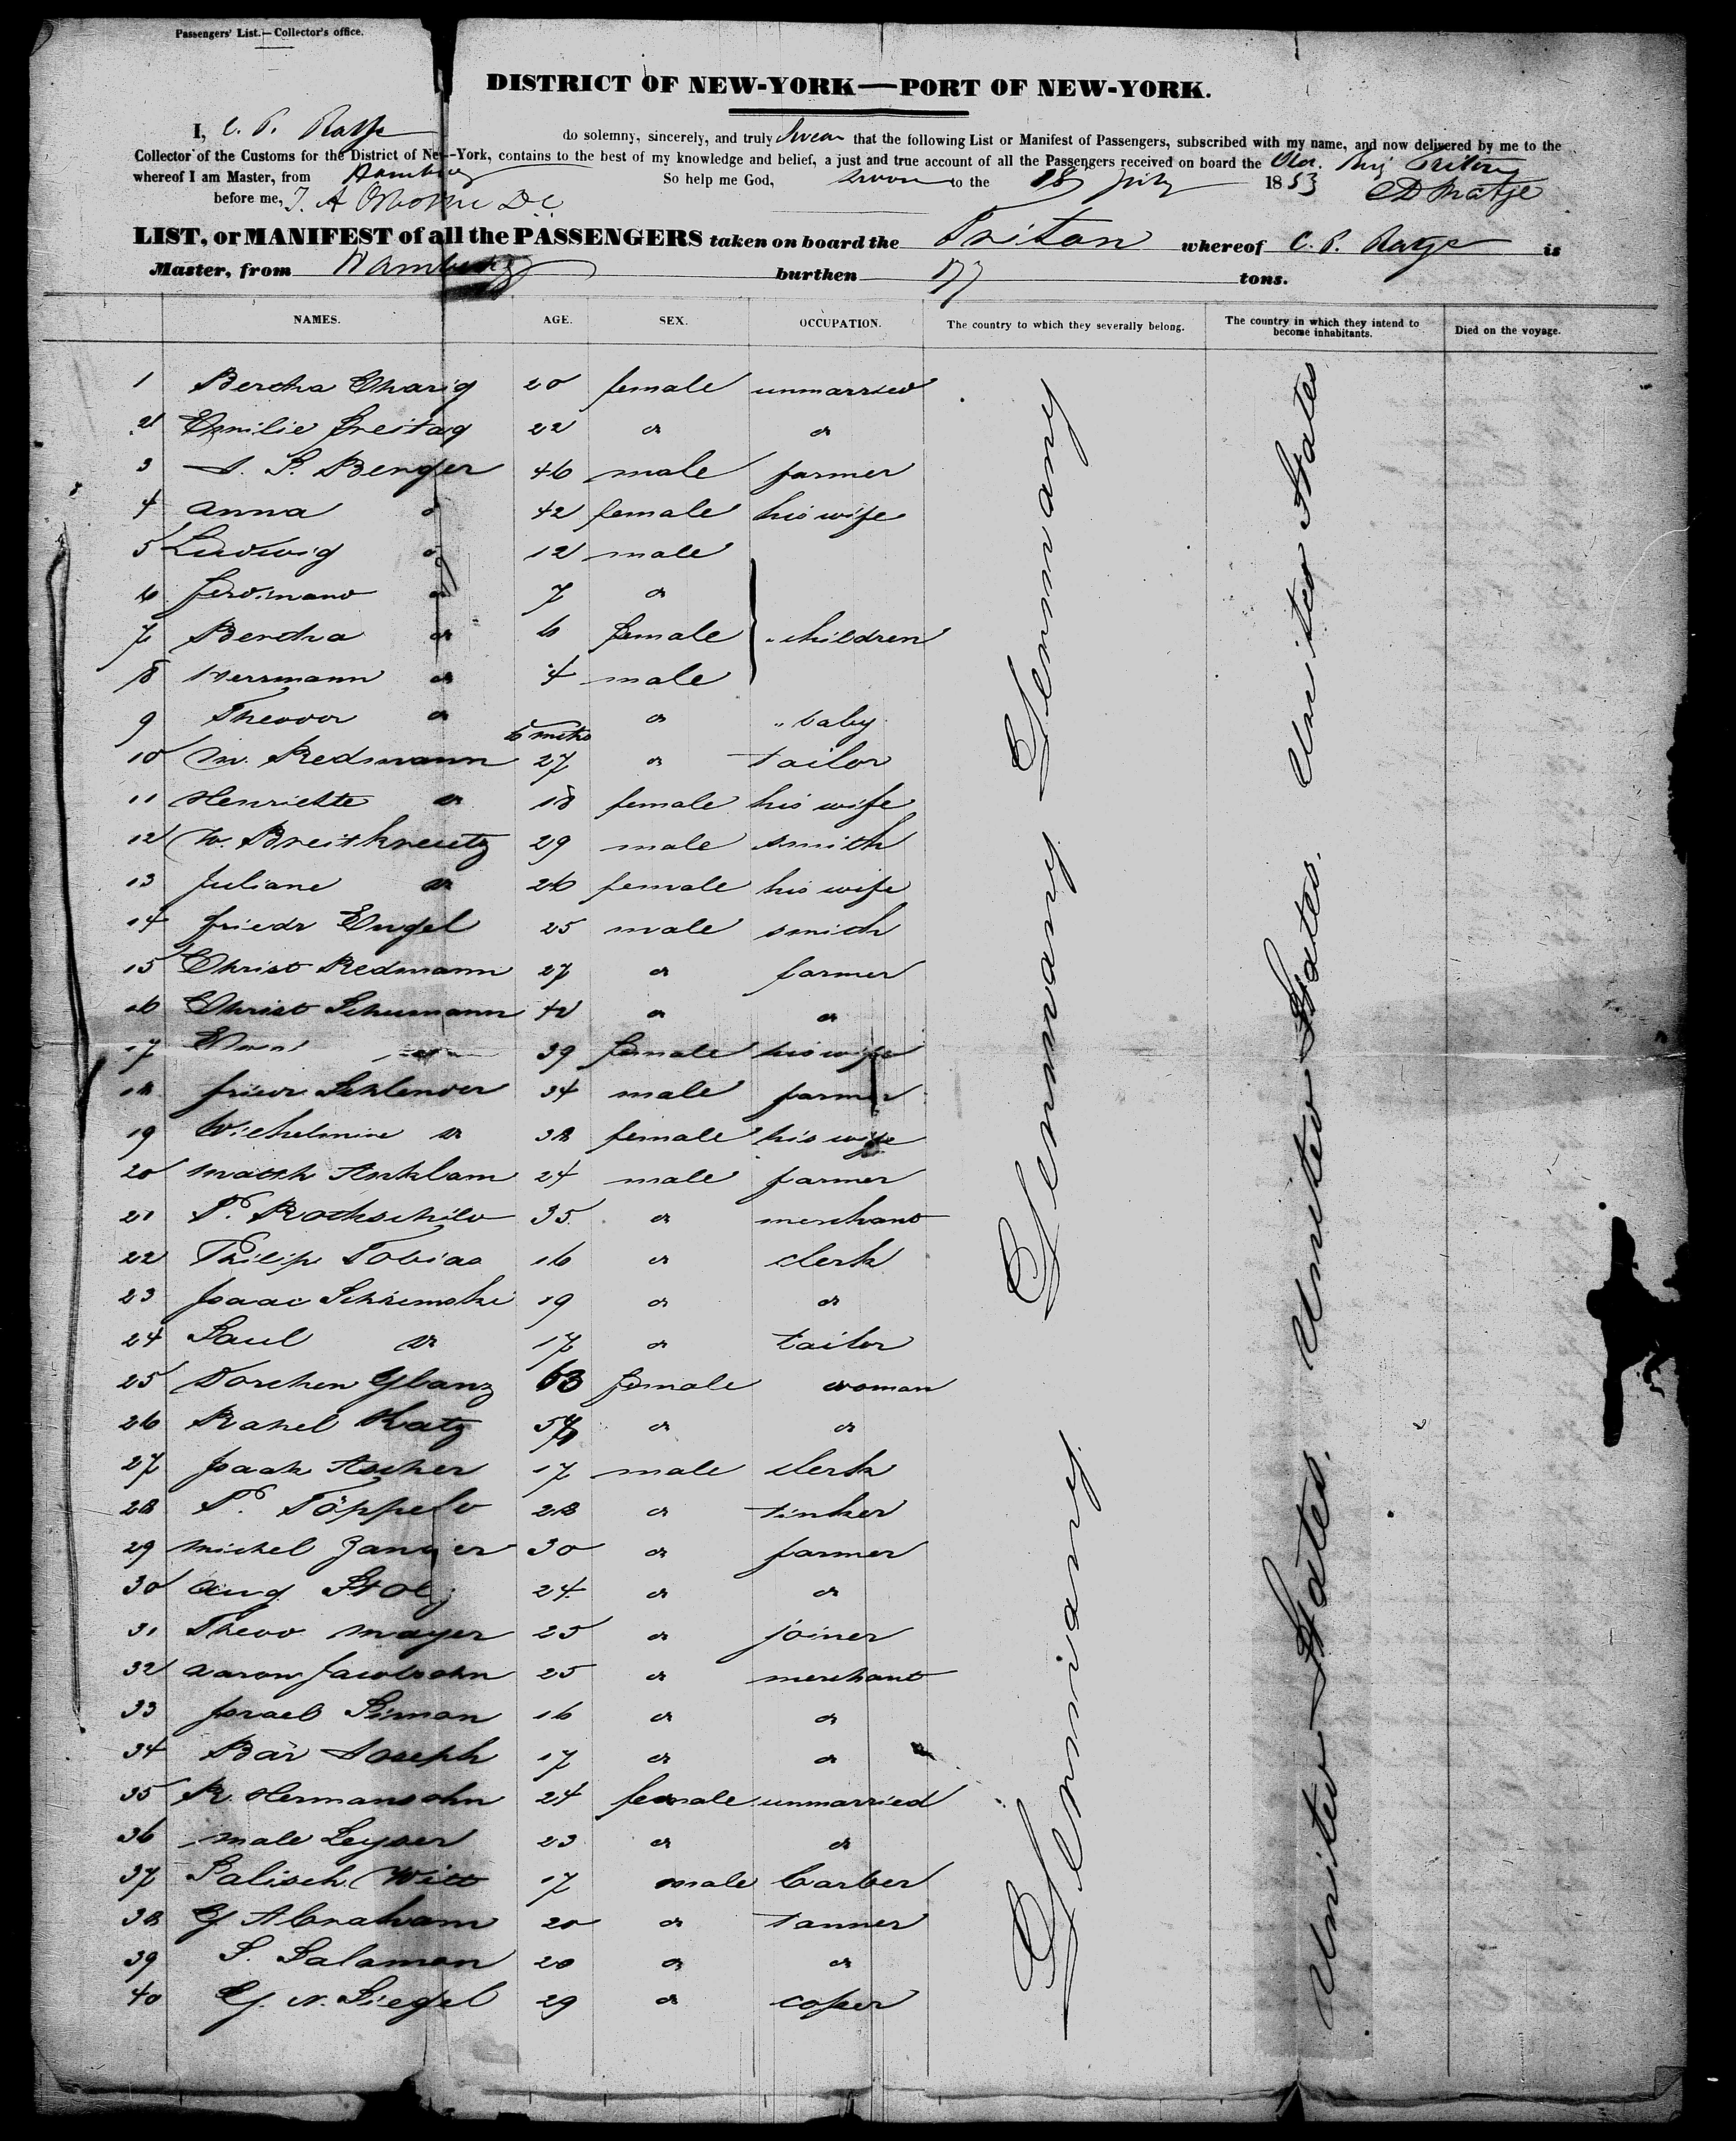 Passengers' List.—Collector's office.
DISTRICT OF NEW-YORK—PORT OF NEW-YORK.
I, C. P. Ratje do solemny, sincerely, and truly swear that the following List or Manifest of Passengers, subscribed with my name, and now delivered by me to the
Collector of the Customs for the District of New-York, contains to the best of my knowledge and belief, a just and true account of all the Passengers received on board the Brig Triton
whereof I am Master, from Hamburg So help me God, sworn to the 18 July 1853 Ratje
before me,
LIST, or MANIFEST of all the PASSENGERS taken on board the Triton whereof C. P. Ratje is
Master, from Hamburg burthen 177 tons.
NAMES. AGE. SEX. OCCUPATION. The country to which they severally belong. The country in which they intend to become inhabitants. Died on the voyage.
1 Bertha 20 female unmarried
2 Emilie Freitag 22 do do
3 Berger 46 male farmer
4 Anna do 42 female his wife
5 Ludwig do 12 male
6 Ferdinand do 7 do
7 Bertha do 6 female children
8 Herrmann do 4 male
9 Theodor do 6 mths do baby
10 Redmann 27 do tailor
11 Henriette do 18 female his wife
12 W. Breitkreutz 29 male smith
13 Juliane do 26 female his wife
14 Friedr Engel 25 male smith
15 Christ Redmann 27 do farmer
16 Christ Schumann 42 do do
17 do 39 female his wife
18 Friedr Schlender 34 male farmer
19 Wilhelmine do 38 female his wife
20 Matth Anklam 24 male farmer
21 P. Rothschild 35 do merchant
22 Philip Tobias 16 do clerk
23 Isaac Schrimski 19 do do
24 Saul do 17 do tailor
25 Dorchen Glanz 63 female woman
26 Rahel Katz do do
27 Isaak Ascher 17 male clerk
28 P. Töppeld 28 do tinker
29 Michel 30 do farmer
30 Aug. Stolz 24 do do
31 Theod Mayer 25 do joiner
32 Aaron Jacobsohn 25 do merchant
33 Israel Siman 16 do do
34 Bär Joseph 17 do do
35 R. Hermansohn 24 female unmarried
36 Male Leyser 23 do do
37 Salisch Witt 17 male barber
38 G Abraham 20 do tanner
39 S. Salamon 20 do do
40 G. N. Siegel 29 do coper
Germany Germany Germany Germany
United States. United States. United States. United States